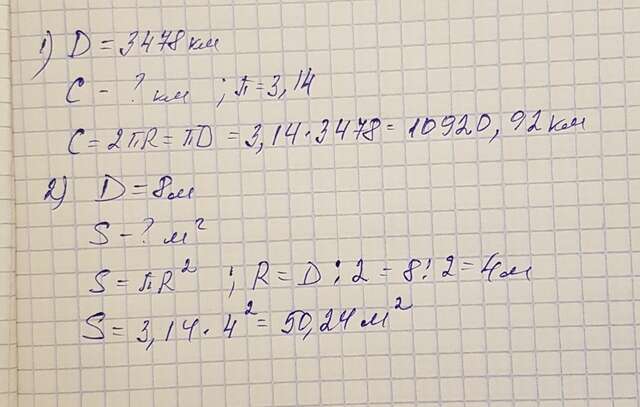 1) D = 3478 км
C - ? км ; π = 3,14
C = 2πR = πD = 3,14 · 3478 = 10920,92 км
2) D = 8 м
S - ? м²
S = πR² ; R = D : 2 = 8 : 2 = 4 м
S = 3,14 · 4² = 50,24 м²